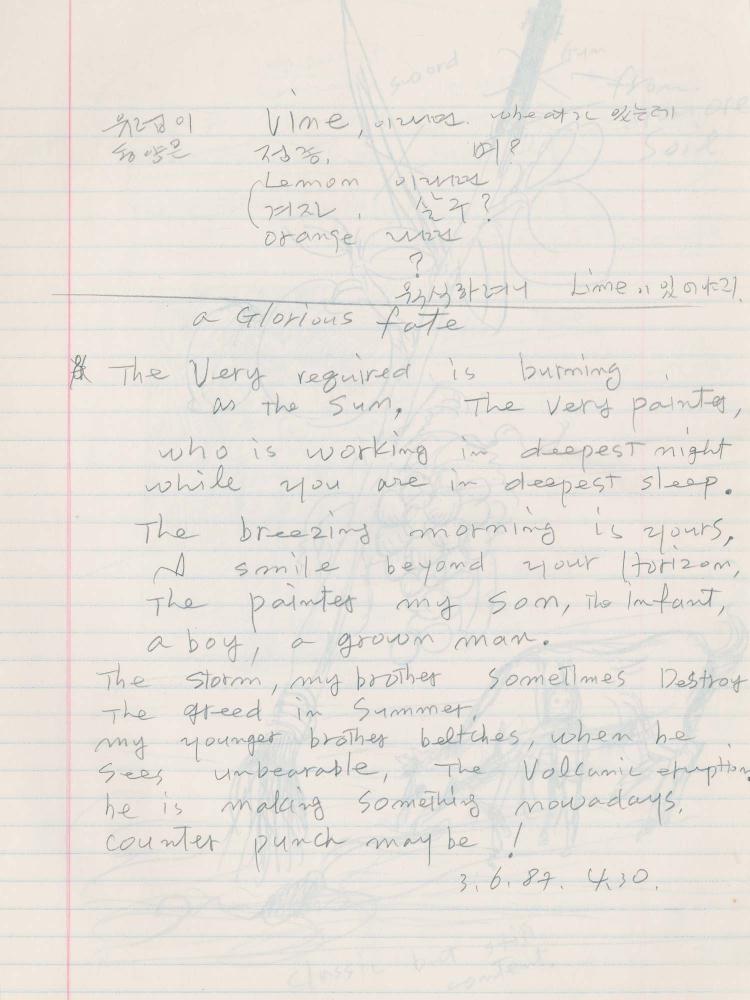 유럽이 Vine, 이라면. 있는데
동양은
Lemon 이라면
겨자, 살구?
orange 라면
?
Lime이 있어야지.
a Glorious fate
The Very required is burning
as the Sun, The Very painter,
who is working in deepest night
while you are in deepest sleep.
The breezing morning is yours,
A smile beyond your Horizon,
The painter my son, The Infant,
a boy, a grown man.
The storm, my brother sometimes Destroy
The greed in Summer,
my younger brother beltches, when he
sees unbearable, The Volcanic eruption
he is making something nowadays,
counter punch may be !
3. 6. 87. 4.30.
sword
from
classic but still
content.